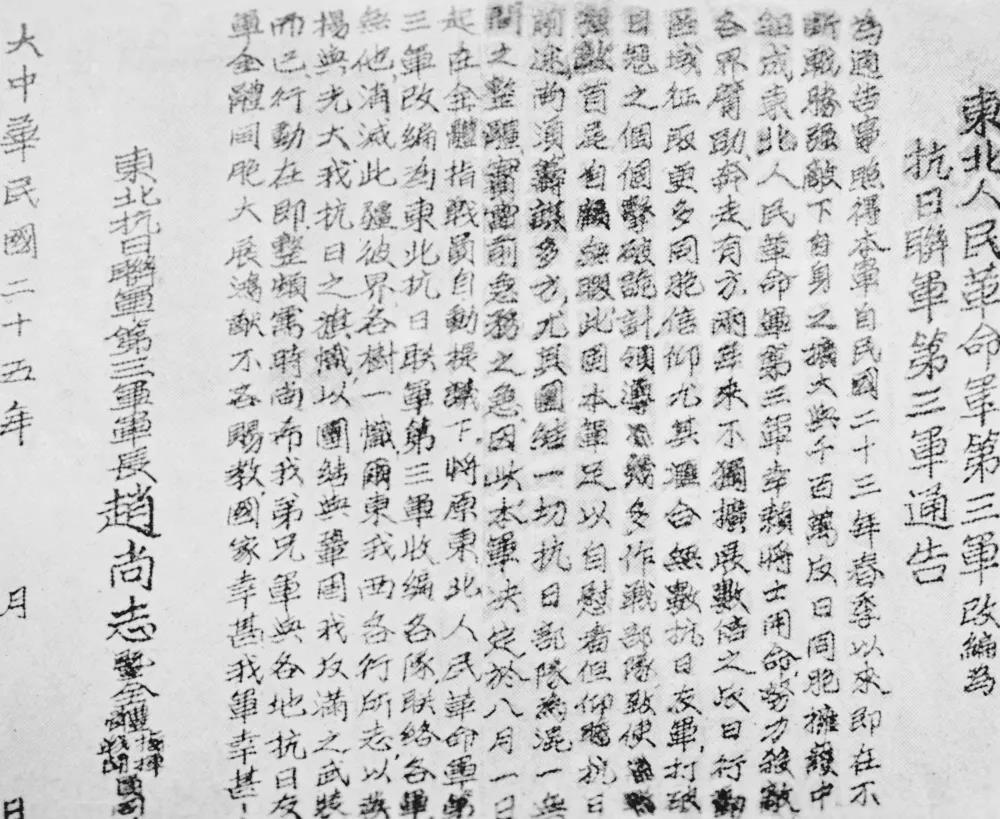 東北人民革命軍第三軍改編為
抗日聯軍第三軍通告
為通告事照得本軍自民國二十三年春季以來即在不
斷戰勝强敵下自身之擴大與千百萬反日同胞擁護中
組成東北人民革命軍第三軍幸賴將士用命努力殺敵
各界臂助奔走有方兩年來不獨擴展數倍之反日行動
區域征取更多同胞信仰尤其滙合無數抗日友軍打破
日冦之個個擊破詭計領導幾多作戰部隊致使
强敵首尾自顧無暇此固本軍足以自慰者但仰瞻抗日
前途尚須籌謀多方尤其團結一切抗日部隊為混一無
間之整體實當前急務之急因此本軍决定於八月一日
起在全體指戰員自動提議下將原東北人民革命軍第
三軍改編為東北抗日联軍第三軍收編各隊联絡各軍
揚與光大我抗日之旗幟以團結與鞏固我反滿之武裝
無他消滅此疆彼界各樹一幟爾東我西各行所志以
而已行動在即整頓需時尚希我弟兄軍與各地抗日友
軍全體同胞大展鴻猷不吝賜教國家幸甚我軍幸甚！
東北抗日聯軍第三軍軍長趙尚志暨全體指揮
戰鬪員司
大中華民國二十五年 月 日